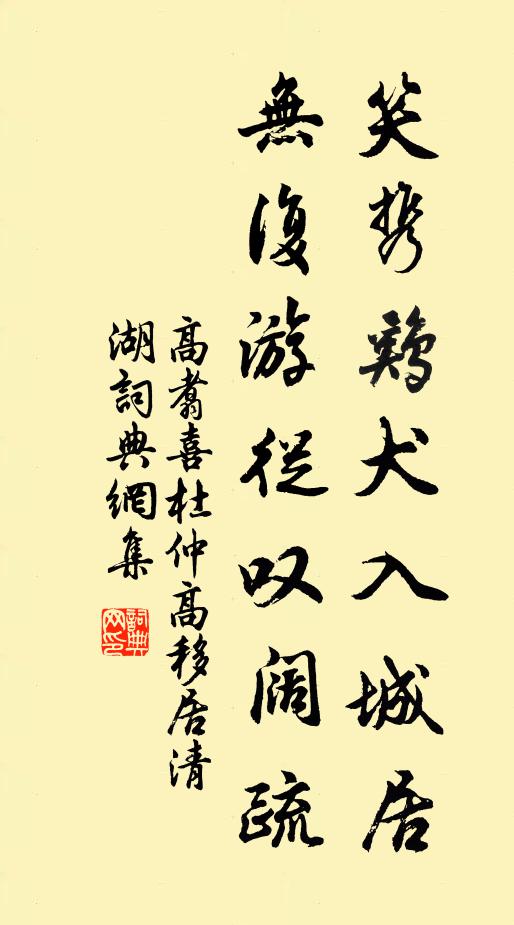 笑携鷄犬入城居
無復游從叹阔疏
高翥喜杜仲高移居清
湖詞典網集
詞典
网印